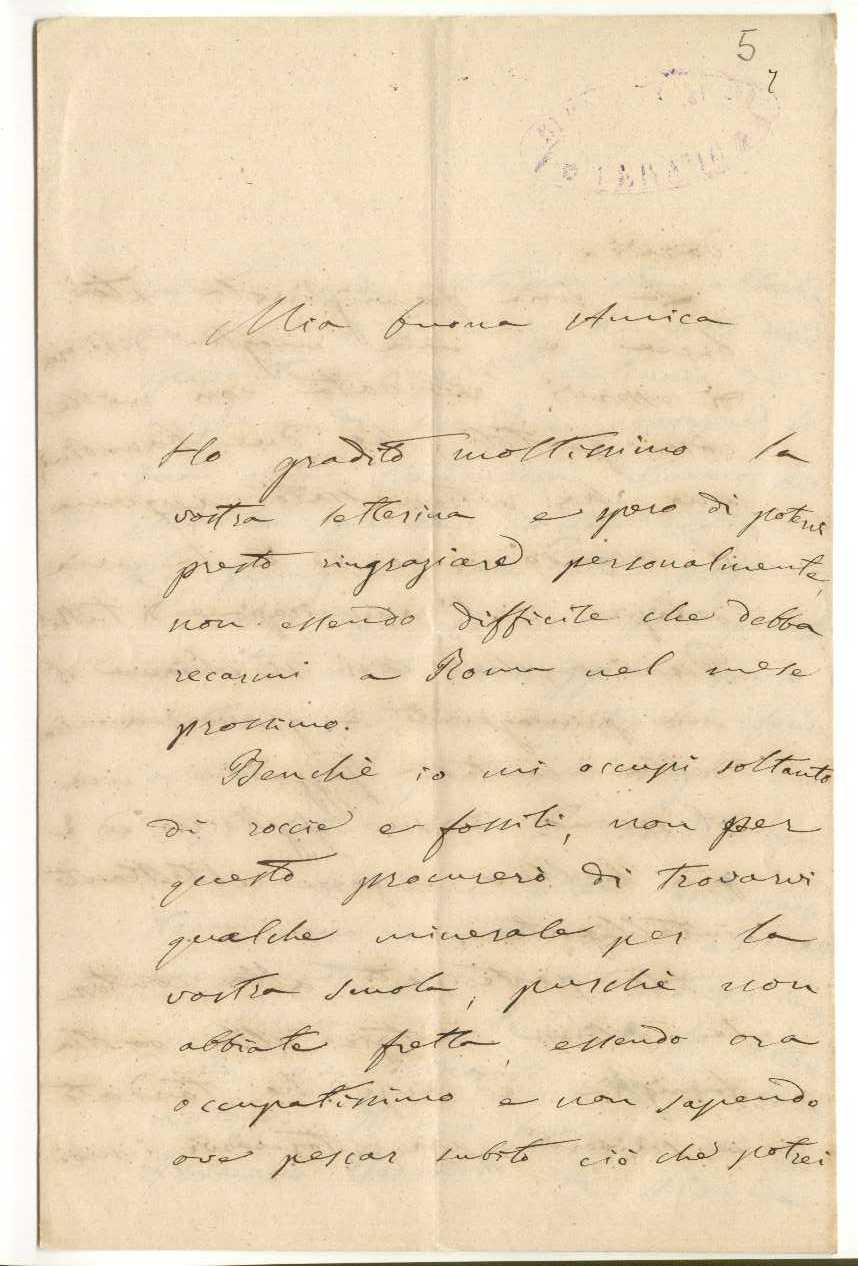 5
Mia buona Amica
Ho gradito moltissimo la
vostra letterina e spero di potervi
presto ringraziare personalmente,
non essendo difficile che debba
recarmi a Roma nel mese
prossimo.
Benchè io mi occupi soltanto
di roccie e fossili, non per
questo procurerò di trovarvi
qualche minerale per la
vostra scuola, purchè non
abbiate fretta, essendo ora
occupatissimo e non sapendo
ove pescar subito ciò che potrei